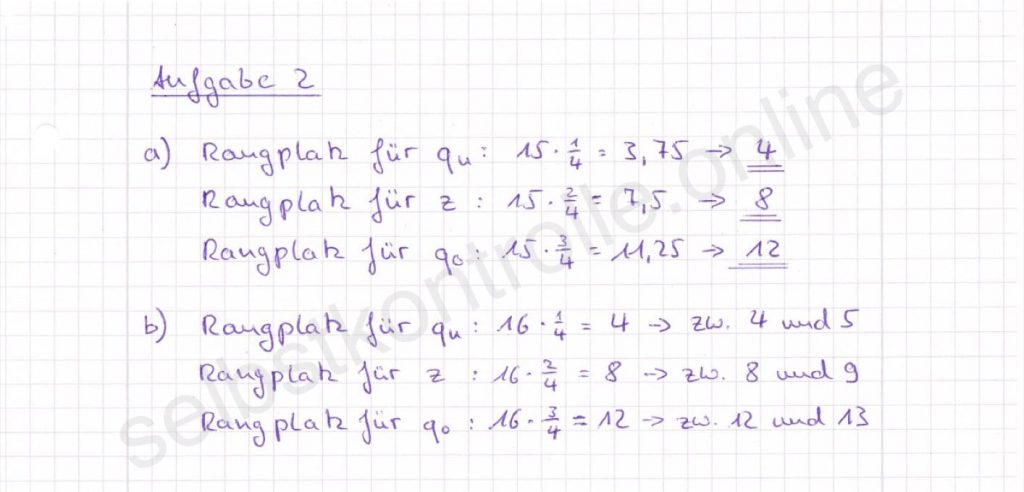 Aufgabe 2
a) Rangplatz für qu: 15 · 1/4 = 3,75 → 4
Rangplatz für z : 15 · 2/4 = 7,5 → 8
Rangplatz für qo: 15 · 3/4 = 11,25 → 12
b) Rangplatz für qu : 16 · 1/4 = 4 → zw. 4 und 5
Rangplatz für z : 16 · 2/4 = 8 → zw. 8 und 9
Rangplatz für qo : 16 · 3/4 = 12 → zw. 12 und 13
selbstkontrolle.online